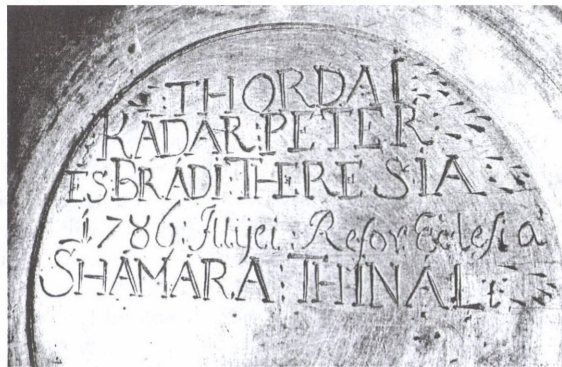 THORDAI
KÁDÁR: PÉTER
ÉS BRÁDI: THERESIA
1786: Illyei: Refor. Ecclesia
SHÁMÁRA: THINÁL: